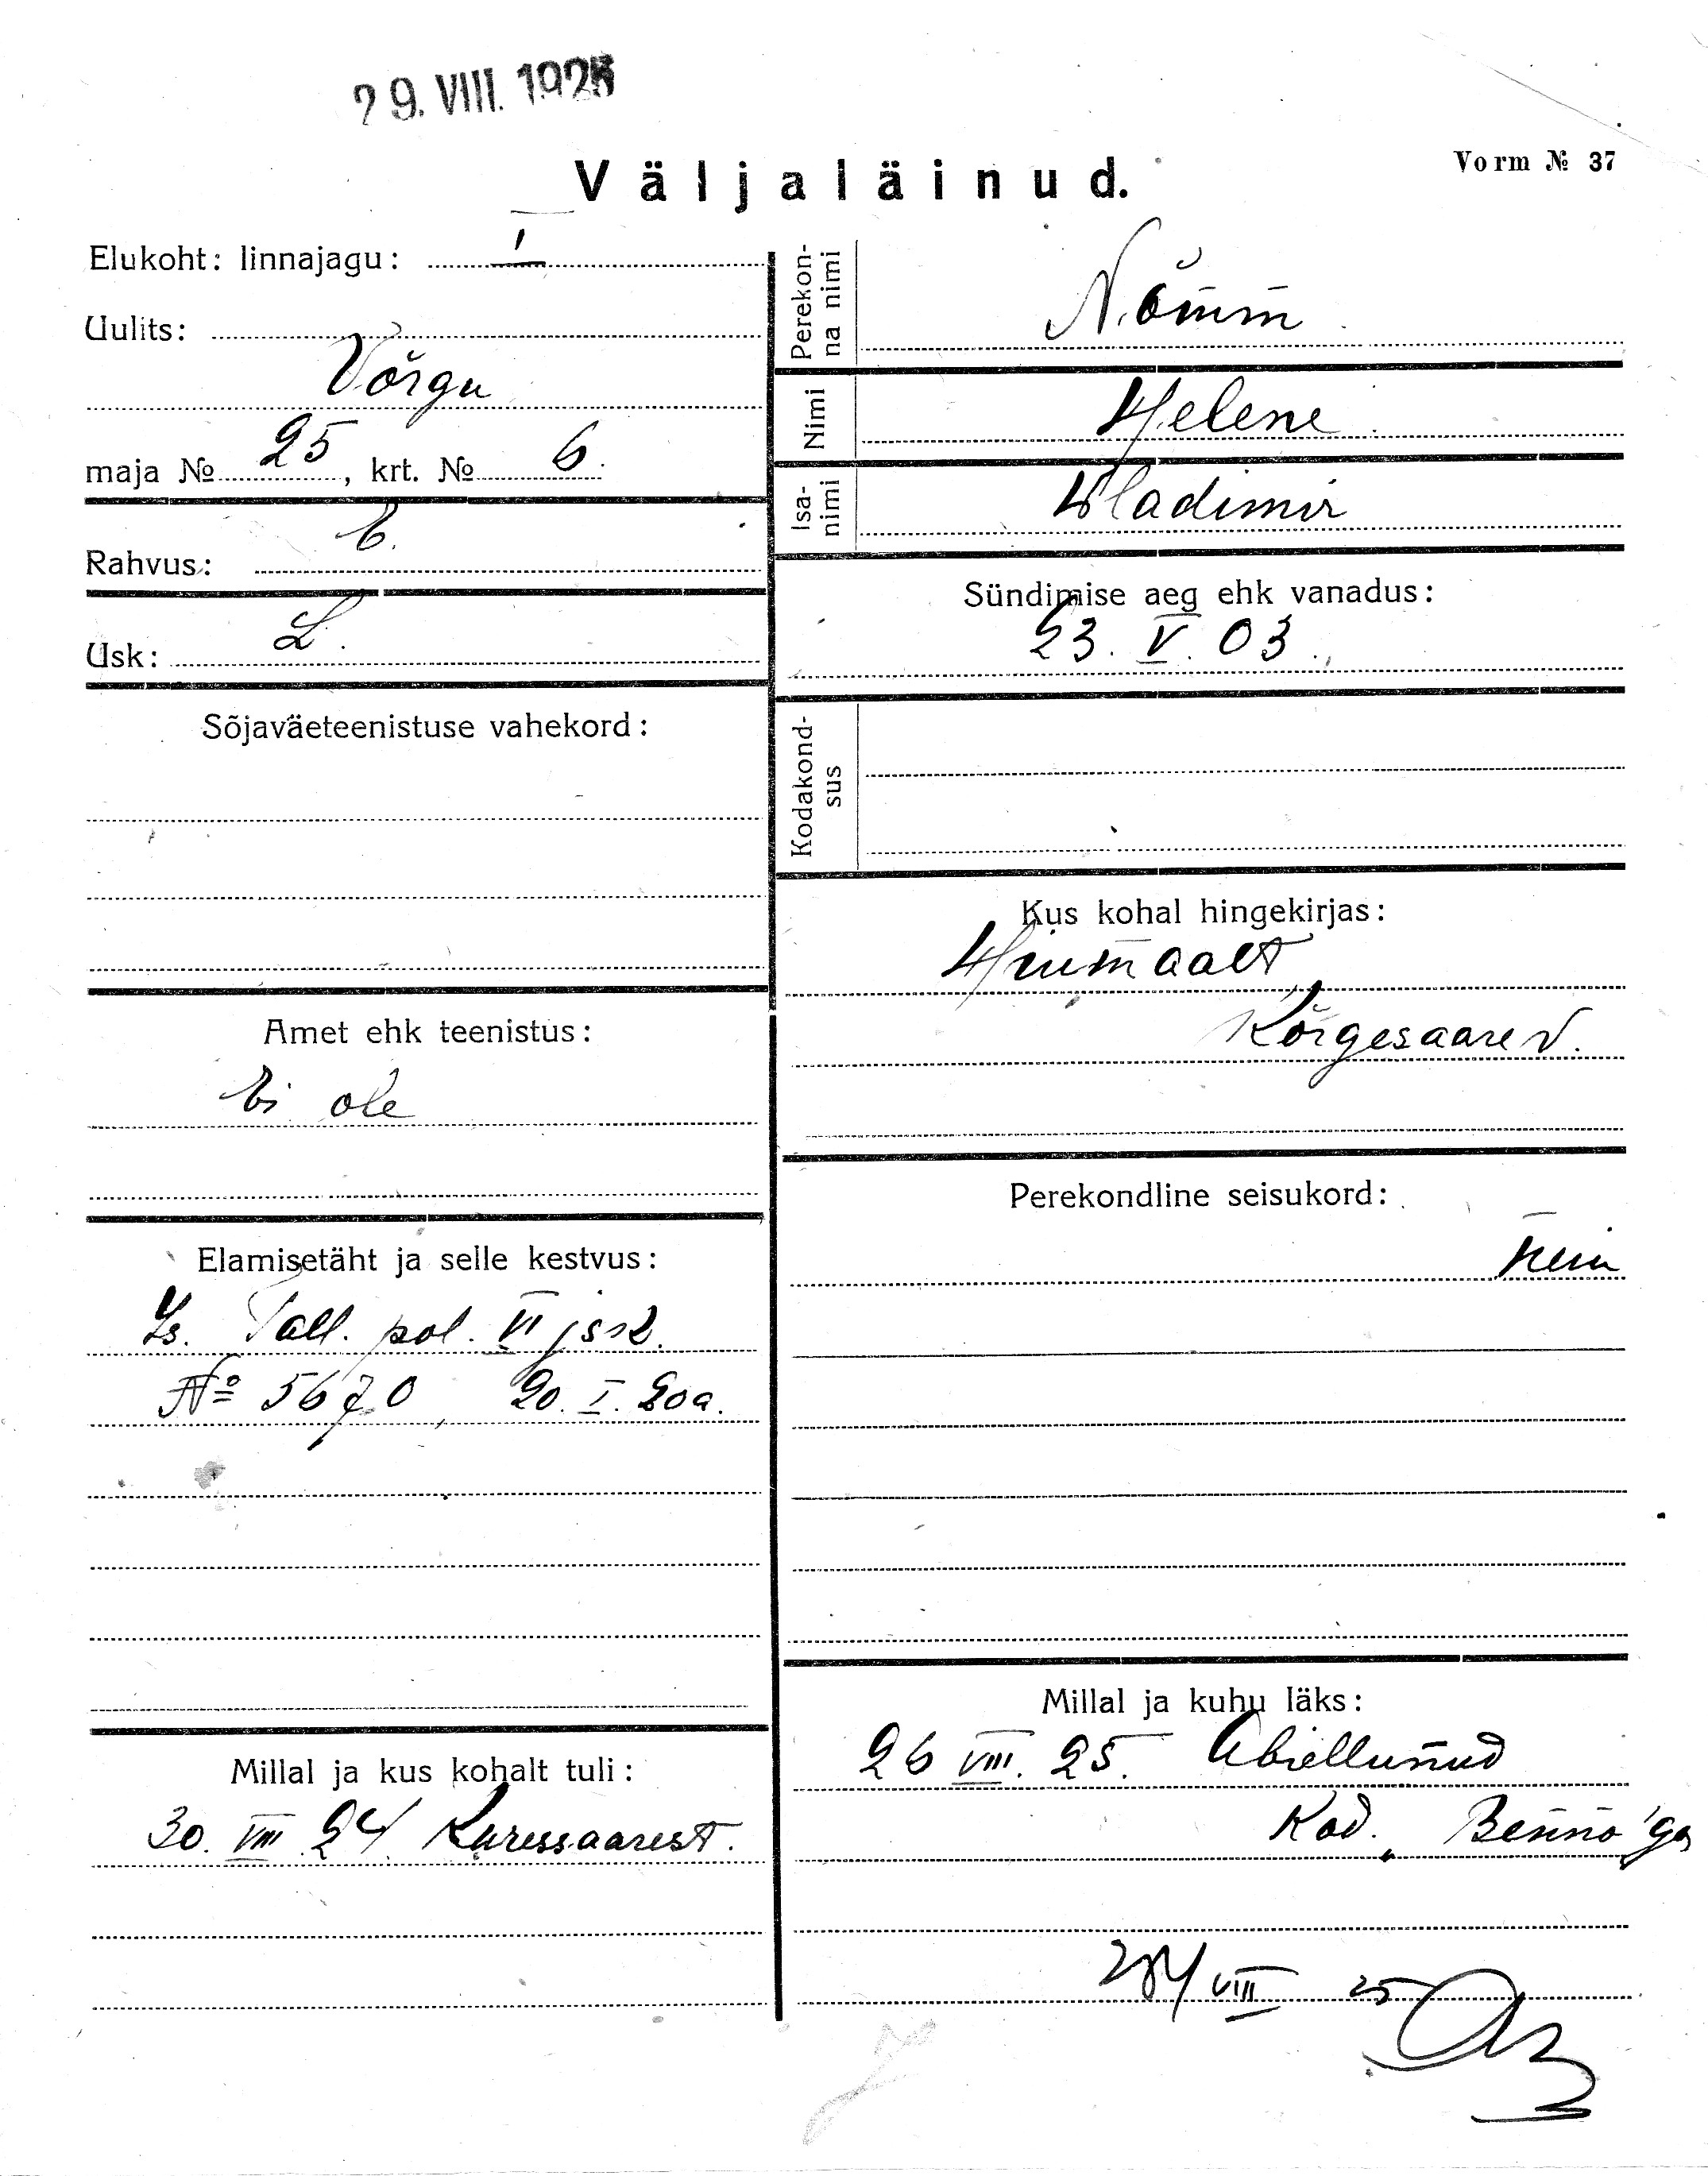 29. VIII. 1925
Väljaläinud.
Vorm № 37
Elukoht: linnajagu: I
Uulits:
Võrgu
maja № 25, krt. № 6.
Rahvus: E.
Usk: L.
Sõjaväeteenistuse vahekord:
Amet ehk teenistus:
Ei ole
Elamisetäht ja selle kestvus:
Is. Tall. pol. VI jsk.
№ 5670, 20. I. 20a.
Millal ja kus kohalt tuli:
30. VIII 24 Kuressaarest.
Perekon-
na nimi
Nõmm
Nimi
Helene
Isa-
nimi
Wladimir
Sündimise aeg ehk vanadus:
23. V. 03.
Kodakond-
sus
Kus kohal hingekirjas:
Hiiumaalt
Kõrgesaare v.
Perekondline seisukord:
Millal ja kuhu läks:
26 VIII. 25. Abiellunud
Kod. Benno'ga
VIII 25